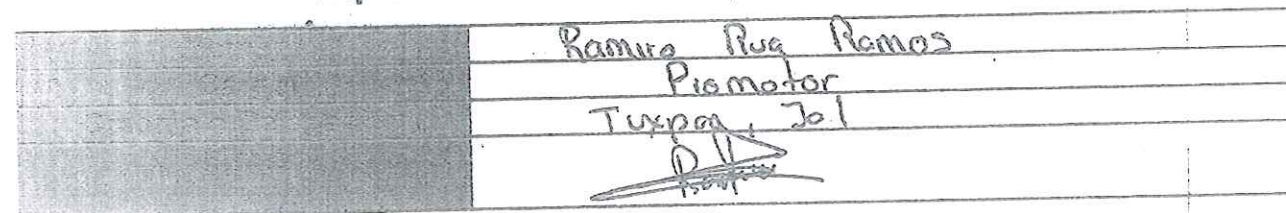 Ramiro Rua Ramos
Promotor
Tuxpan, Jal